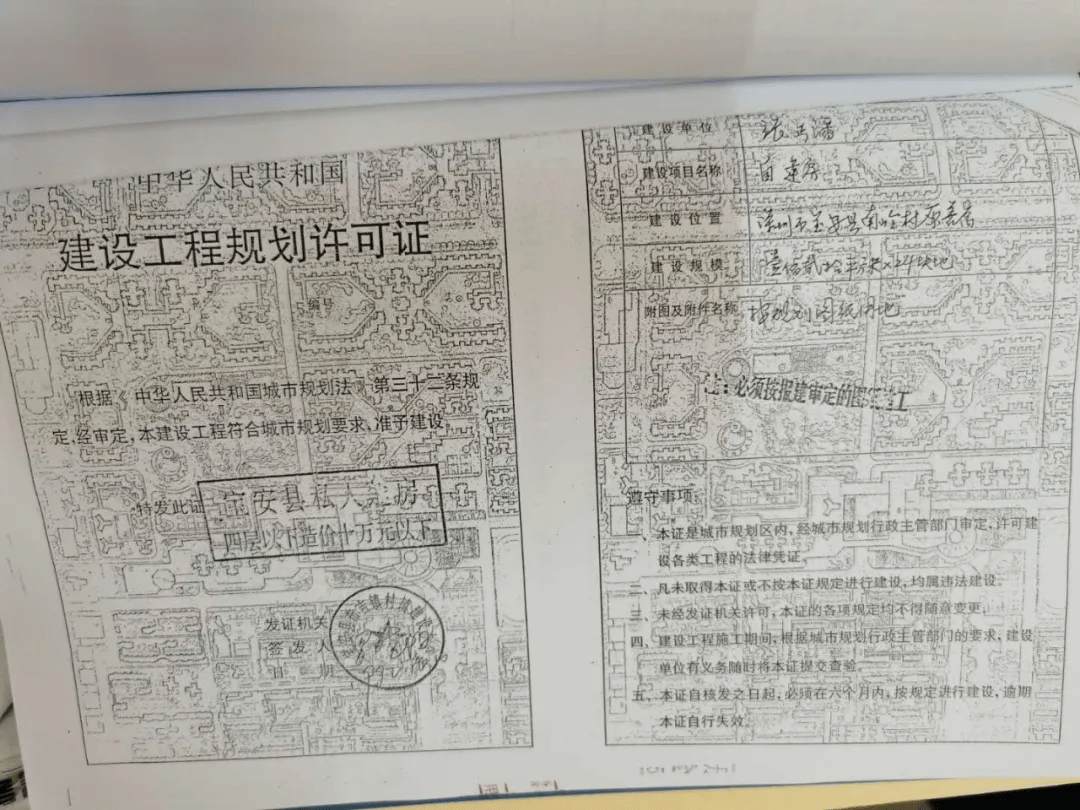 中华人民共和国
建设工程规划许可证
编号
根据《中华人民共和国城市规划法》第三十二条规
定,经审定,本建设工程符合城市规划要求,准予建设。
特发此证
宝安县私人住房
四层以下造价十万元以下
发证机关
签发人
日期
建设单位
建设项目名称
建设位置 深圳市宝安县南岭村
建设规模
附图及附件名称 按规划图纸用地
注:必须按报建审定的图纸施工
遵守事项:
一、本证是城市规划区内,经城市规划行政主管部门审定,许可建
设各类工程的法律凭证。
二、凡未取得本证或不按本证规定进行建设,均属违法建设。
三、未经发证机关许可,本证的各项规定均不得随意变更。
四、建设工程施工期间,根据城市规划行政主管部门的要求,建设
单位有义务随时将本证提交查验。
五、本证自核发之日起,必须在六个月内,按规定进行建设,逾期
本证自行失效。